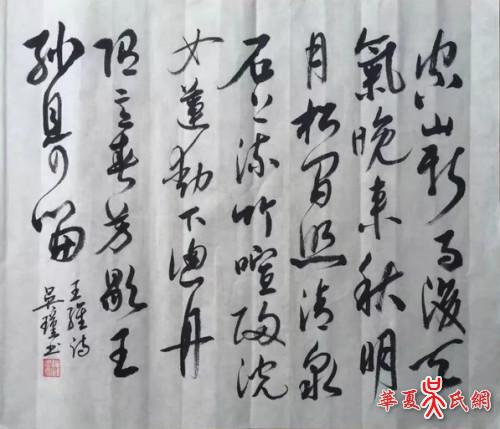 空山新雨後天
氣晚来秋明
月松間照清泉
石上流竹喧歸浣
女蓮動下漁舟
随意春芳歇王
孫自可留
王維詩
吳瑾书
華夏吴氏網